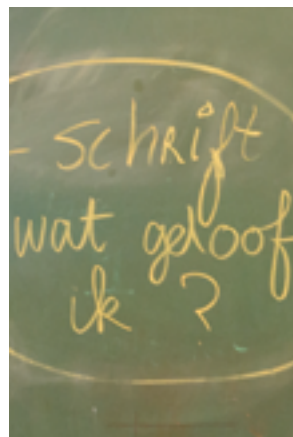 - schrift
wat geloof
ik ?